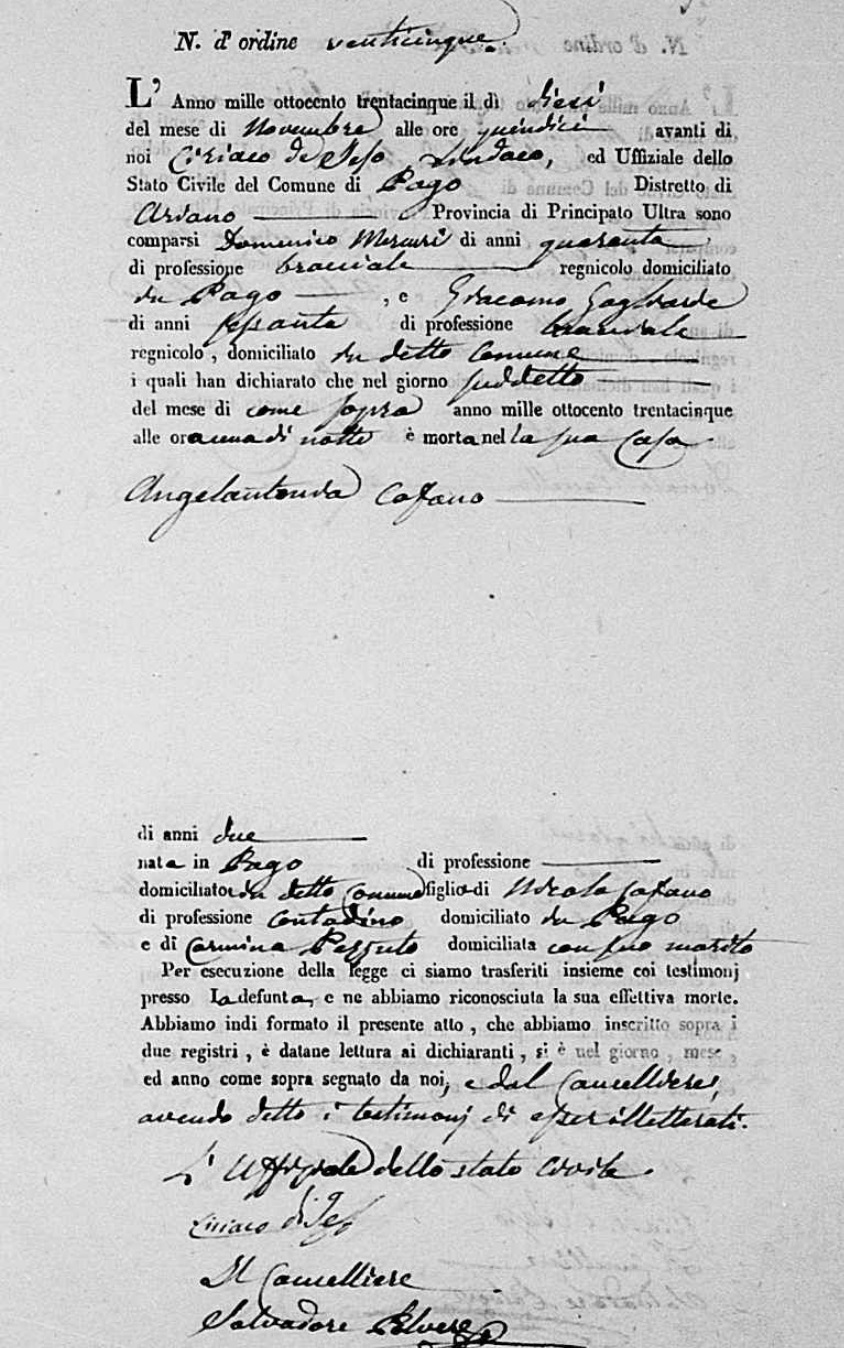 N. d' ordine venticinque.
L' Anno mille ottocento trentacinque il dì dieci
del mese di Novembre alle ore quindici avanti di
noi Ciriaco de Sindaco, ed Uffiziale dello
Stato Civile del Comune di Pago Distretto di
Ariano Provincia di Principato Ultra sono
comparsi Domenico Mercuri di anni quaranta
di professione bracciale regnicolo domiciliato
in Pago , e Giacomo Gagliarde
di anni sessanta di professione bracciale
regnicolo , domiciliato in detto Comune
i quali han dichiarato che nel giorno suddetto
del mese di come sopra anno mille ottocento trentacinque
alle ore una di notte è morta nella sua casa
Angelantonia Cafano
di anni due
nata in Pago di professione
domiciliato in detto Comune figlia di Nicola Cafano
di professione Contadino domiciliato in Pago
e di Carmina Pezzuto domiciliata con suo marito
Per esecuzione della legge ci siamo trasferiti insieme coi testimonj
presso la defunta, e ne abbiamo riconosciuta la sua effettiva morte.
Abbiamo indi formato il presente atto , che abbiamo inscritto sopra i
due registri , è datane lettura ai dichiaranti , si è nel giorno , mese ,
ed anno come sopra segnato da noi, e dal Cancelliere,
avendo detto i testimonj di esser illetterati.
L' Uffiziale dello stato Civile
Ciriaco
Il Cancelliere
Salvadore Polvere